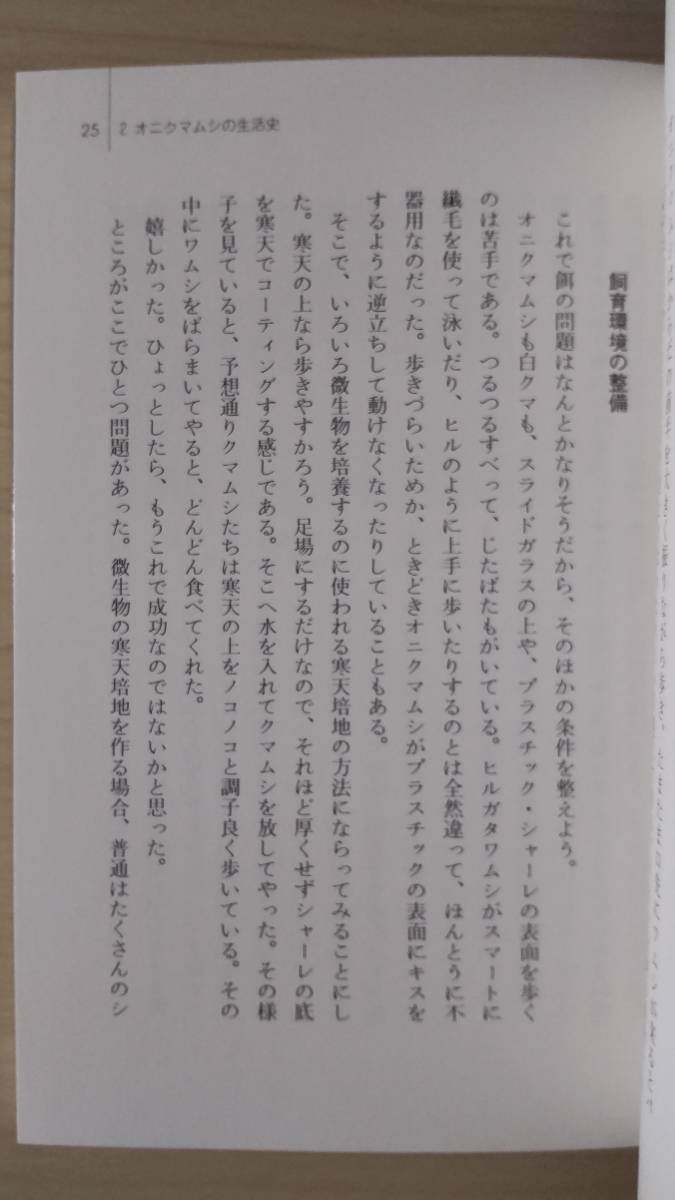 25
2 オニクマムシの生活史
飼育環境の整備
これで餌の問題はなんとかなりそうだから、そのほかの条件を整えよう。
オニクマムシも白クマも、スライドガラスの上や、プラスチック・シャーレの表面を歩く
のは苦手である。つるつるすべって、じたばたもがいている。ヒルガタワムシがスマートに
繊毛を使って泳いだり、ヒルのように上手に歩いたりするのとは全然違って、ほんとうに不
器用なのだった。歩きづらいためか、ときどきオニクマムシがプラスチックの表面にキスを
するように逆立ちして動けなくなったりしていることもある。
そこで、いろいろ微生物を培養するのに使われる寒天培地の方法にならってみることにし
た。寒天の上なら歩きやすかろう。足場にするだけなので、それほど厚くせずシャーレの底
を寒天でコーティングする感じである。そこへ水を入れてクマムシを放してやった。その様
子を見ていると、予想通りクマムシたちは寒天の上をノコノコと調子良く歩いている。その
中にワムシをばらまいてやると、どんどん食べてくれた。
嬉しかった。ひょっとしたら、もうこれで成功なのではないかと思った。
ところがここでひとつ問題があった。微生物の寒天培地を作る場合、普通はたくさんのシ